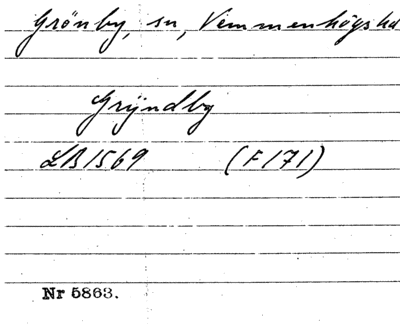 Grönby, sn, Vemmenhögs hd
Gryndby
LB 1569 (F 171)
Nr 5863.